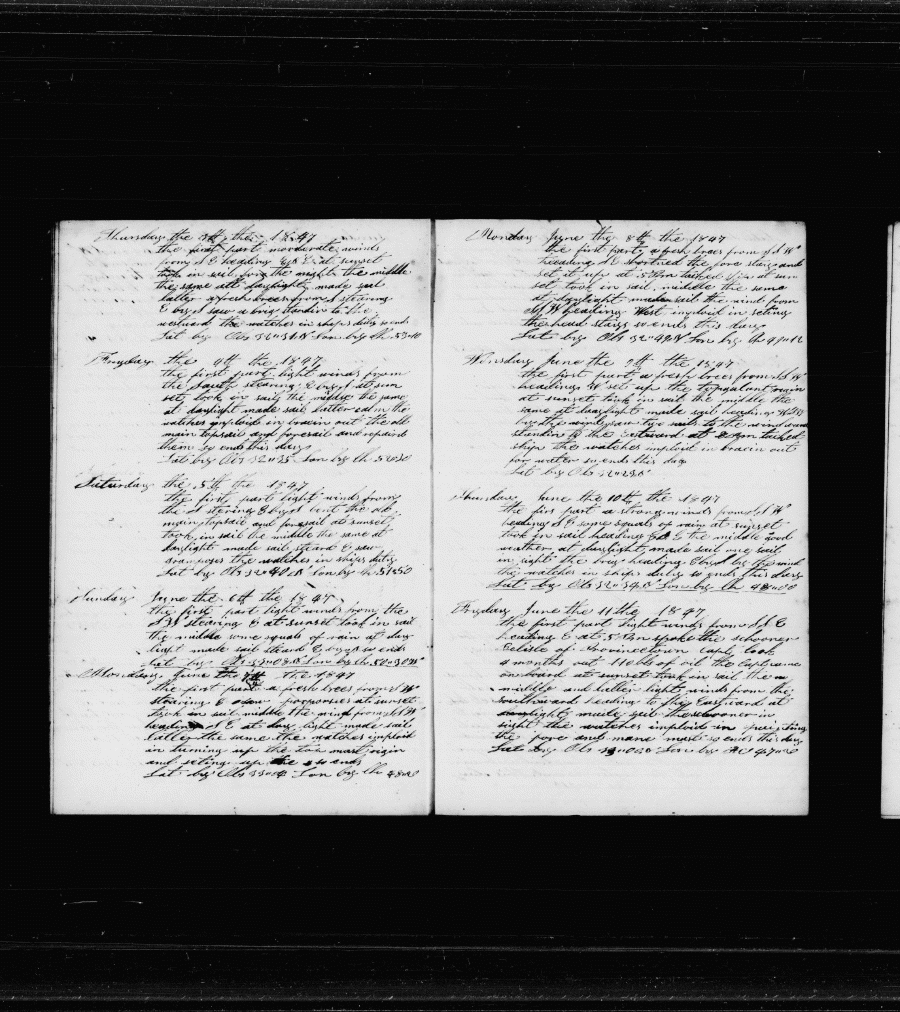 Thursday the 3th the 1847
the first part moderate winds
from S E heading at sunset
took in sail for the night the middle
the same att daylight made sail
latter a fresh brees from S stearing
E by S saw a brig standin to the
westward the watches in ships duty so ends
Lat by Obs 32 " 31 N Lon by Ch 53 " 10
Fryday the 4th the 1847
the first part light winds from
the South stearing E by S at sun
set took in sail, the middle the same
at daylight made sail latter calm the
watches imploid in bracin out the old
main topsail and foresail and repaird
them so ends this day
Lat by Obs 32 " 35 Lon by Ch 52 " 30
Saturday the 5th the 1847
the first part light winds from
the S stearing E by S bent the old
main topsail and foresail at sunset
took in sail the middle the same at
daylight made sail steard E saw
the watches in ships duty
Lat by Obs 32 " 40 N Lon by Ch 51 " 50
Sunday June the 6th the 1847
the first part light winds from the
S W stearing E at sunset took in sail
the middle some squals of rain at day
light made sail steard E by S so ends
Lat by Obs 33 " 08 N Lon by Ch 50 " 30 W
Monday June the 7th the 1847
the first part a fresh brees from S W
stearing E saw porposes at sunset
took in sail middle the wind from S W
heading S E at day light made sail
latter the same the watches imploid
in turning up the main rigin
and seting up the so ends
Lat by Obs 33 " 04 Lon by Ch 48 "
Monday June the 8th the 1847
the first part a fresh brees from S W
heading S E shortned the fore stay and
set it up at 5 P m tacked ship at sun
set took in sail, middle the same
at daylight made sail the wind from
S W heading West imploid in seting
the head stays so ends this day
Lat by Obs 32 " 49 N Lon by Ch 49 " 12
Wensday June the 9th the 1847
the first part a fresh brees from S W
heading W set up the topgalant rigin
at sunset took in sail the middle the
same at daylight made sail heading
by the wind saw two sails to the windward
standin to the Eastward at tacked
ship the watches imploid in bracin out
for water so ends this day
Lat by Obs 32 " 23 N
Thursday June the 10th the 1847
the firs part a strong winds from S W
heading S E some squals of rain at sunset
took in sail heading S E the middle good
weather at daylight made sail one sail
in sight the brig heading by the wind
the watches in ships duty so ends this day
Lat by Obs 32 " 34 N Lon by Ch 48 " 00
Fryday June the 11th 1847
the first part light winds from S E
heading E at 5 P m spoke the schooner
of Provincetown Capt Cook
4 months out 110 bbl of oil the Capt came
onboard at sunset took in sail the
middle and latter light winds from the
Southward heading to the Eastward at
daylight made sail the schooner in
sight the watches imploid in
the fore and main mast so ends this day
Lat by Obs Lon by Ch 47 " 20